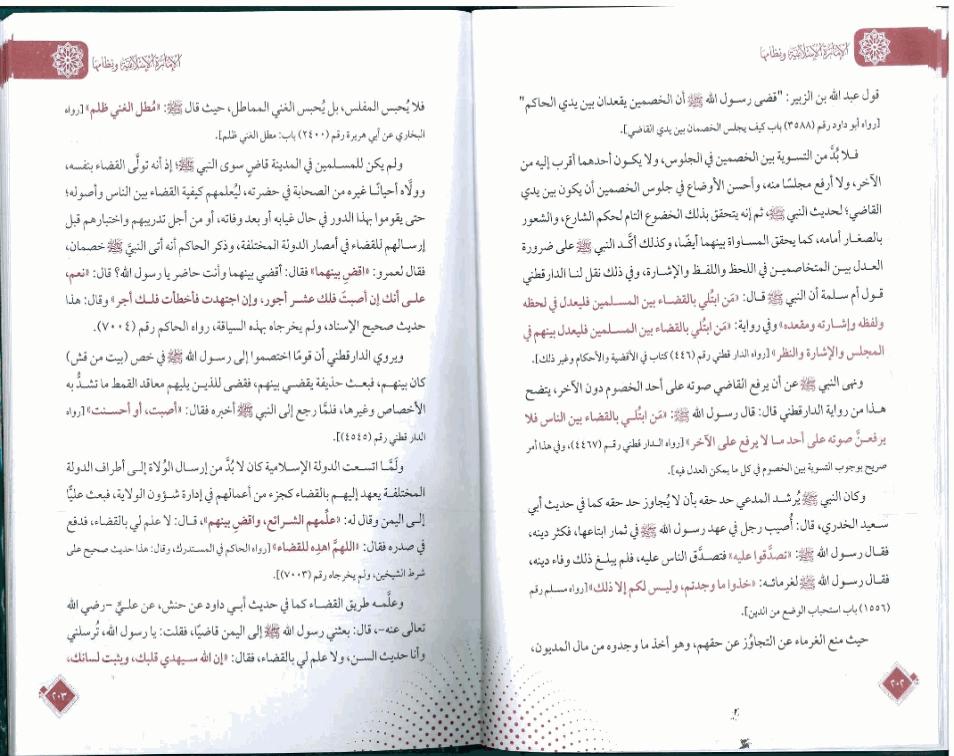 الإمارة الإسلامية ونظامها
قول عبد الله بن الزبير: "قضى رسول الله ﷺ أن الخصمين يقعدان بين يدي الحاكم"
[رواه أبو داود رقم (٣٥٨٨) باب كيف يجلس الخصمان بين يدي القاضي].
فلا بُدَّ من التسوية بين الخصمين في الجلوس، ولا يكون أحدهما أقرب إليه من
الآخر، ولا أرفع مجلسًا منه، وأحسن الأوضاع في جلوس الخصمين أن يكون بين يدي
القاضي؛ لحديث النبي ﷺ، ثم إنه يتحقق بذلك الخضوع التام لحكم الشارع، والشعور
بالصغار أمامه، كما يحقق المساواة بينهما أيضًا، وكذلك أكَّد النبي ﷺ على ضرورة
العدل بين المتخاصمين في اللحظ واللفظ والإشارة، وفي ذلك نقل لنا الدارقطني
قول أم سلمة أن النبي ﷺ قال: «مَن ابتُلي بالقضاء بين المسلمين فليعدل في لحظه
ولفظه وإشارته ومقعده» وفي رواية: «مَن ابتُلي بالقضاء بين المسلمين فليعدل بينهم في
المجلس والإشارة والنظر» [رواه الدار قطني رقم (٤٤٦) كتاب في الأقضية والأحكام وغير ذلك].
ونهى النبي ﷺ عن أن يرفع القاضي صوته على أحد الخصوم دون الآخر، يتضح
هذا من رواية الدارقطني قال: قال رسول الله ﷺ: «مَن ابتُلي بالقضاء بين الناس فلا
يرفعنَّ صوته على أحد ما لا يرفع على الآخر» [رواه الدار قطني رقم (٤٤٦٧)، وفي هذا أمر
صريح بوجوب التسوية بين الخصوم في كل ما يمكن العدل فيه].
وكان النبي ﷺ يُرشد المدعي حد حقه بأن لا يُجاوز حد حقه كما في حديث أبي
سعيد الخدري، قال: أُصيب رجل في عهد رسول الله ﷺ في ثمار ابتاعها، فكثر دينه،
فقال رسول الله ﷺ: «تصدَّقوا عليه» فتصدَّق الناس عليه، فلم يبلغ ذلك وفاء دينه،
فقال رسول الله ﷺ لغرمائه: «خذوا ما وجدتم، وليس لكم إلا ذلك» [رواه مسلم رقم
(١٥٥٦) باب استحباب الوضع من الدين].
حيث منع الغرماء عن التجاوُز عن حقهم، وهو أخذ ما وجدوه من مال المديون،
٢٠٢
الإمارة الإسلامية ونظامها
فلا يُحبس المفلس، بل يُحبس الغني المماطل، حيث قال ﷺ: «مُطل الغني ظلم» [رواه
البخاري عن أبي هريرة رقم (٢٤٠٠) باب: مطل الغني ظلم].
ولم يكن للمسلمين في المدينة قاضٍ سوى النبي ﷺ؛ إذ أنه تولَّى القضاء بنفسه،
وولَّاه أحيانًا غيره من الصحابة في حضرته، ليُعلمهم كيفية القضاء بين الناس وأصوله؛
حتى يقوموا بهذا الدور في حال غيابه أو بعد وفاته، أو من أجل تدريبهم واختبارهم قبل
إرسالهم للقضاء في أمصار الدولة المختلفة، وذكر الحاكم أنه أتى النبيَّ ﷺ خصمان،
فقال لعمرو: «اقضِ بينهما» فقال: أقضي بينهما وأنت حاضر يا رسول الله؟ قال: «نعم،
على أنك إن أصبتَ فلك عشر أجور، وإن اجتهدت فأخطأت فلك أجر» وقال: هذا
حديث صحيح الإسناد، ولم يخرجاه بهذه السياقة، رواه الحاكم رقم (٧٠٠٤).
ويروي الدارقطني أن قومًا اختصموا إلى رسول الله ﷺ في خص (بيت من قش)
كان بينهم، فبعث حذيفة يقضي بينهم، فقضى للذين يليهم معاقد القمط ما تشدُّ به
الأخصاص وغيرها، فلمَّا رجع إلى النبي ﷺ أخبره فقال: «أصبت، أو أحسنت» [رواه
الدار قطني رقم (٤٥٤٥)].
ولَمَّا اتسعت الدولة الإسلامية كان لا بُدَّ من إرسال الوُلاة إلى أطراف الدولة
المختلفة يعهد إليهم بالقضاء كجزء من أعمالهم في إدارة شؤون الولاية، فبعث عليًّا
إلى اليمن وقال له: «علِّمهم الشرائع، واقضِ بينهم»، قال: لا علم لي بالقضاء، فدفع
في صدره فقال: «اللهمَّ اهدِه للقضاء» [رواه الحاكم في المستدرك، وقال: هذا حديث صحيح على
شرط الشيخين، ولم يخرجاه رقم (٧٠٠٣)].
وعلَّمه طريق القضاء كما في حديث أبي داود عن حنش، عن عليٍّ -رضي الله
تعالى عنه-، قال: بعثني رسول الله ﷺ إلى اليمن قاضيًا، فقلت: يا رسول الله، تُرسلني
وأنا حديث السن، ولا علم لي بالقضاء، فقال: «إن الله سيهدي قلبك، ويثبت لسانك،
٢٠٣